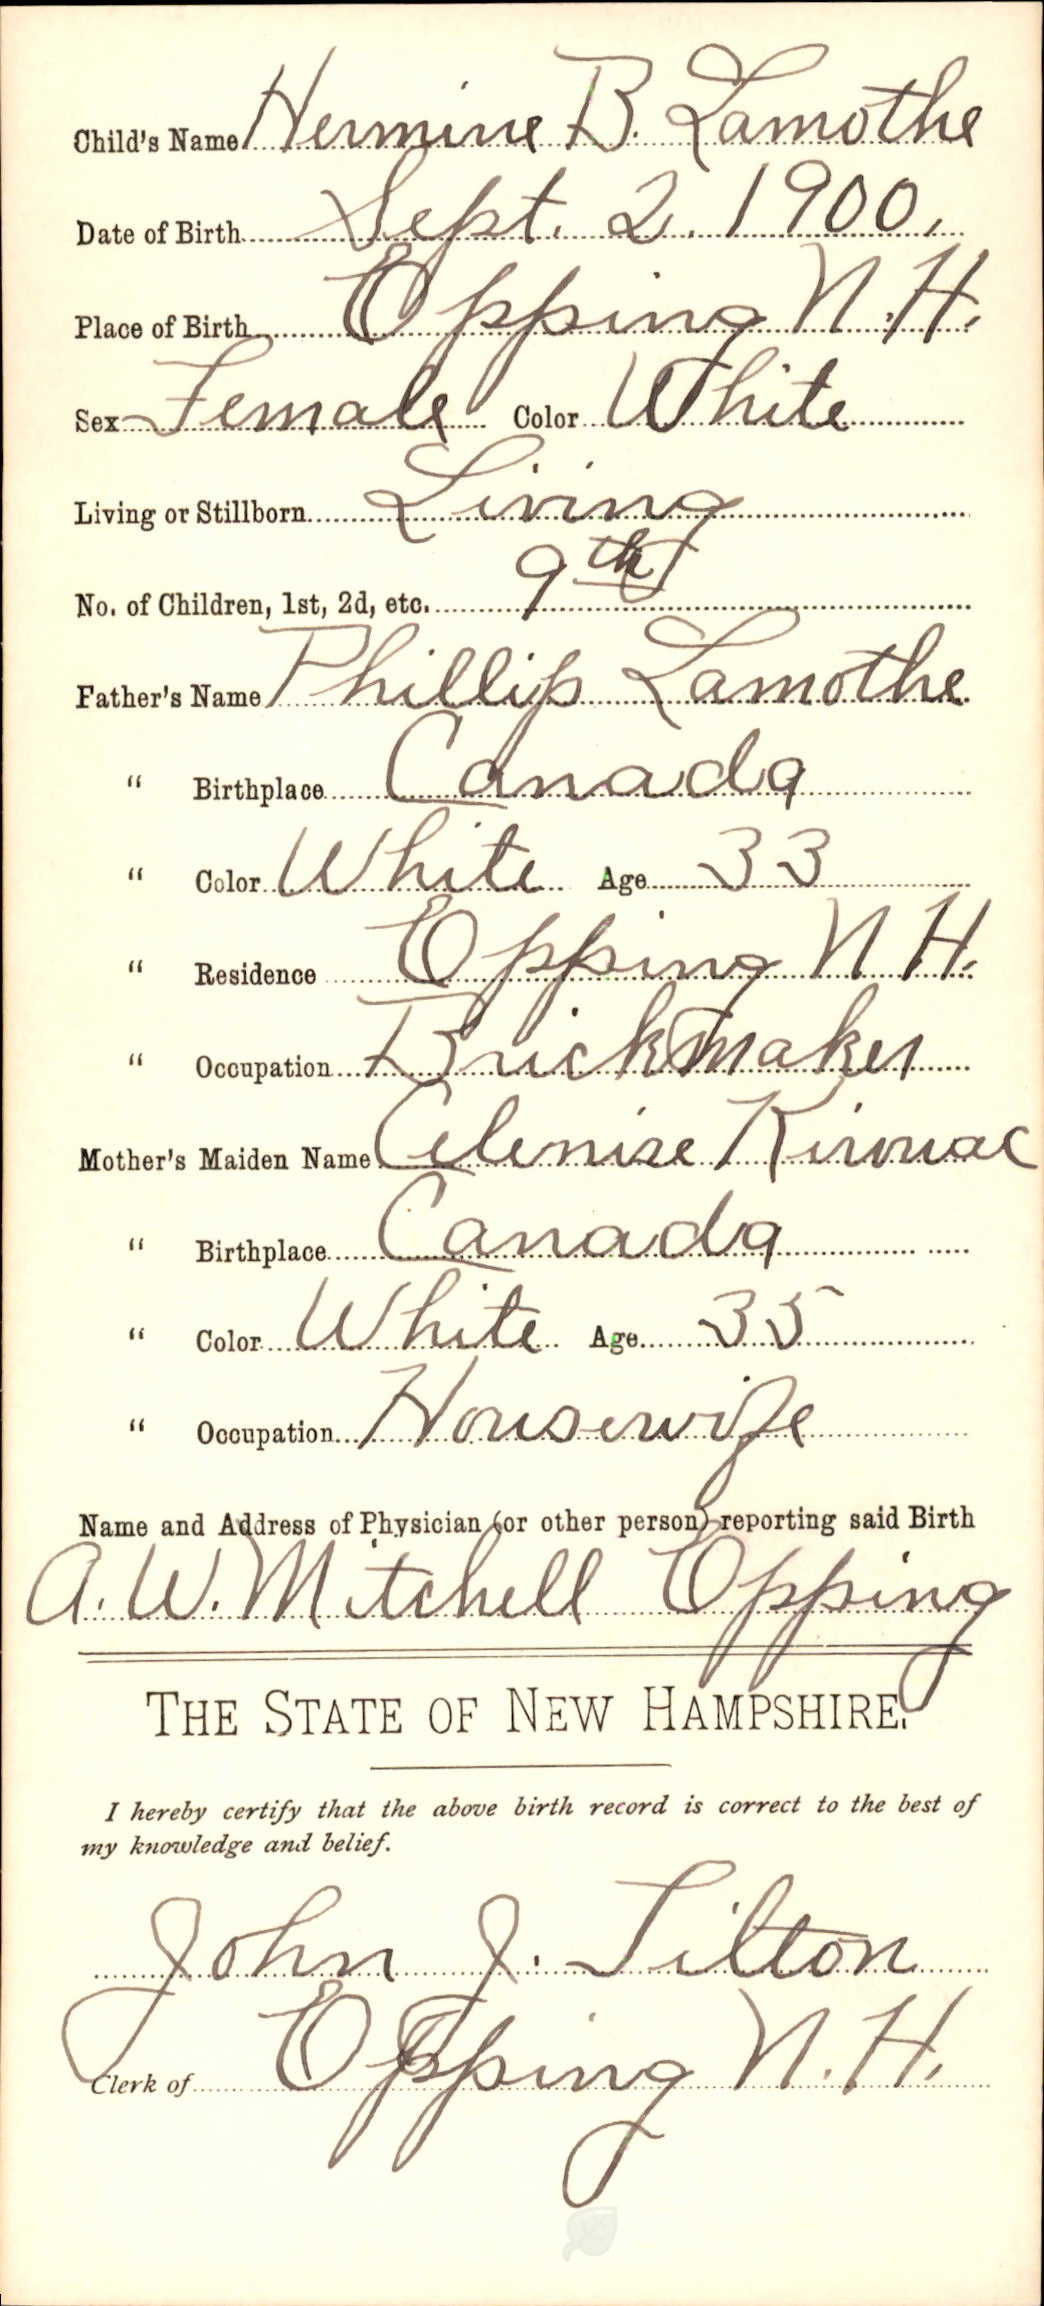 Child's Name Hermine B. Lamothe
Date of Birth Sept. 2. 1900.
Place of Birth Epping N.H.
Sex Female Color White
Living or Stillborn Living
No. of Children, 1st, 2d, etc. 9th
Father's Name Phillip Lamothe
" Birthplace Canada
" Color White Age 33
" Residence Epping N H.
" Occupation Brickmaker
Mother's Maiden Name Celenise Kirouac
" Birthplace Canada
" Color White Age 35
" Occupation Housewife
Name and Address of Physician (or other person) reporting said Birth
A. W. Mitchell Epping
THE STATE OF NEW HAMPSHIRE.
I hereby certify that the above birth record is correct to the best of
my knowledge and belief.
John J. Tilton
Clerk of Epping N.H.